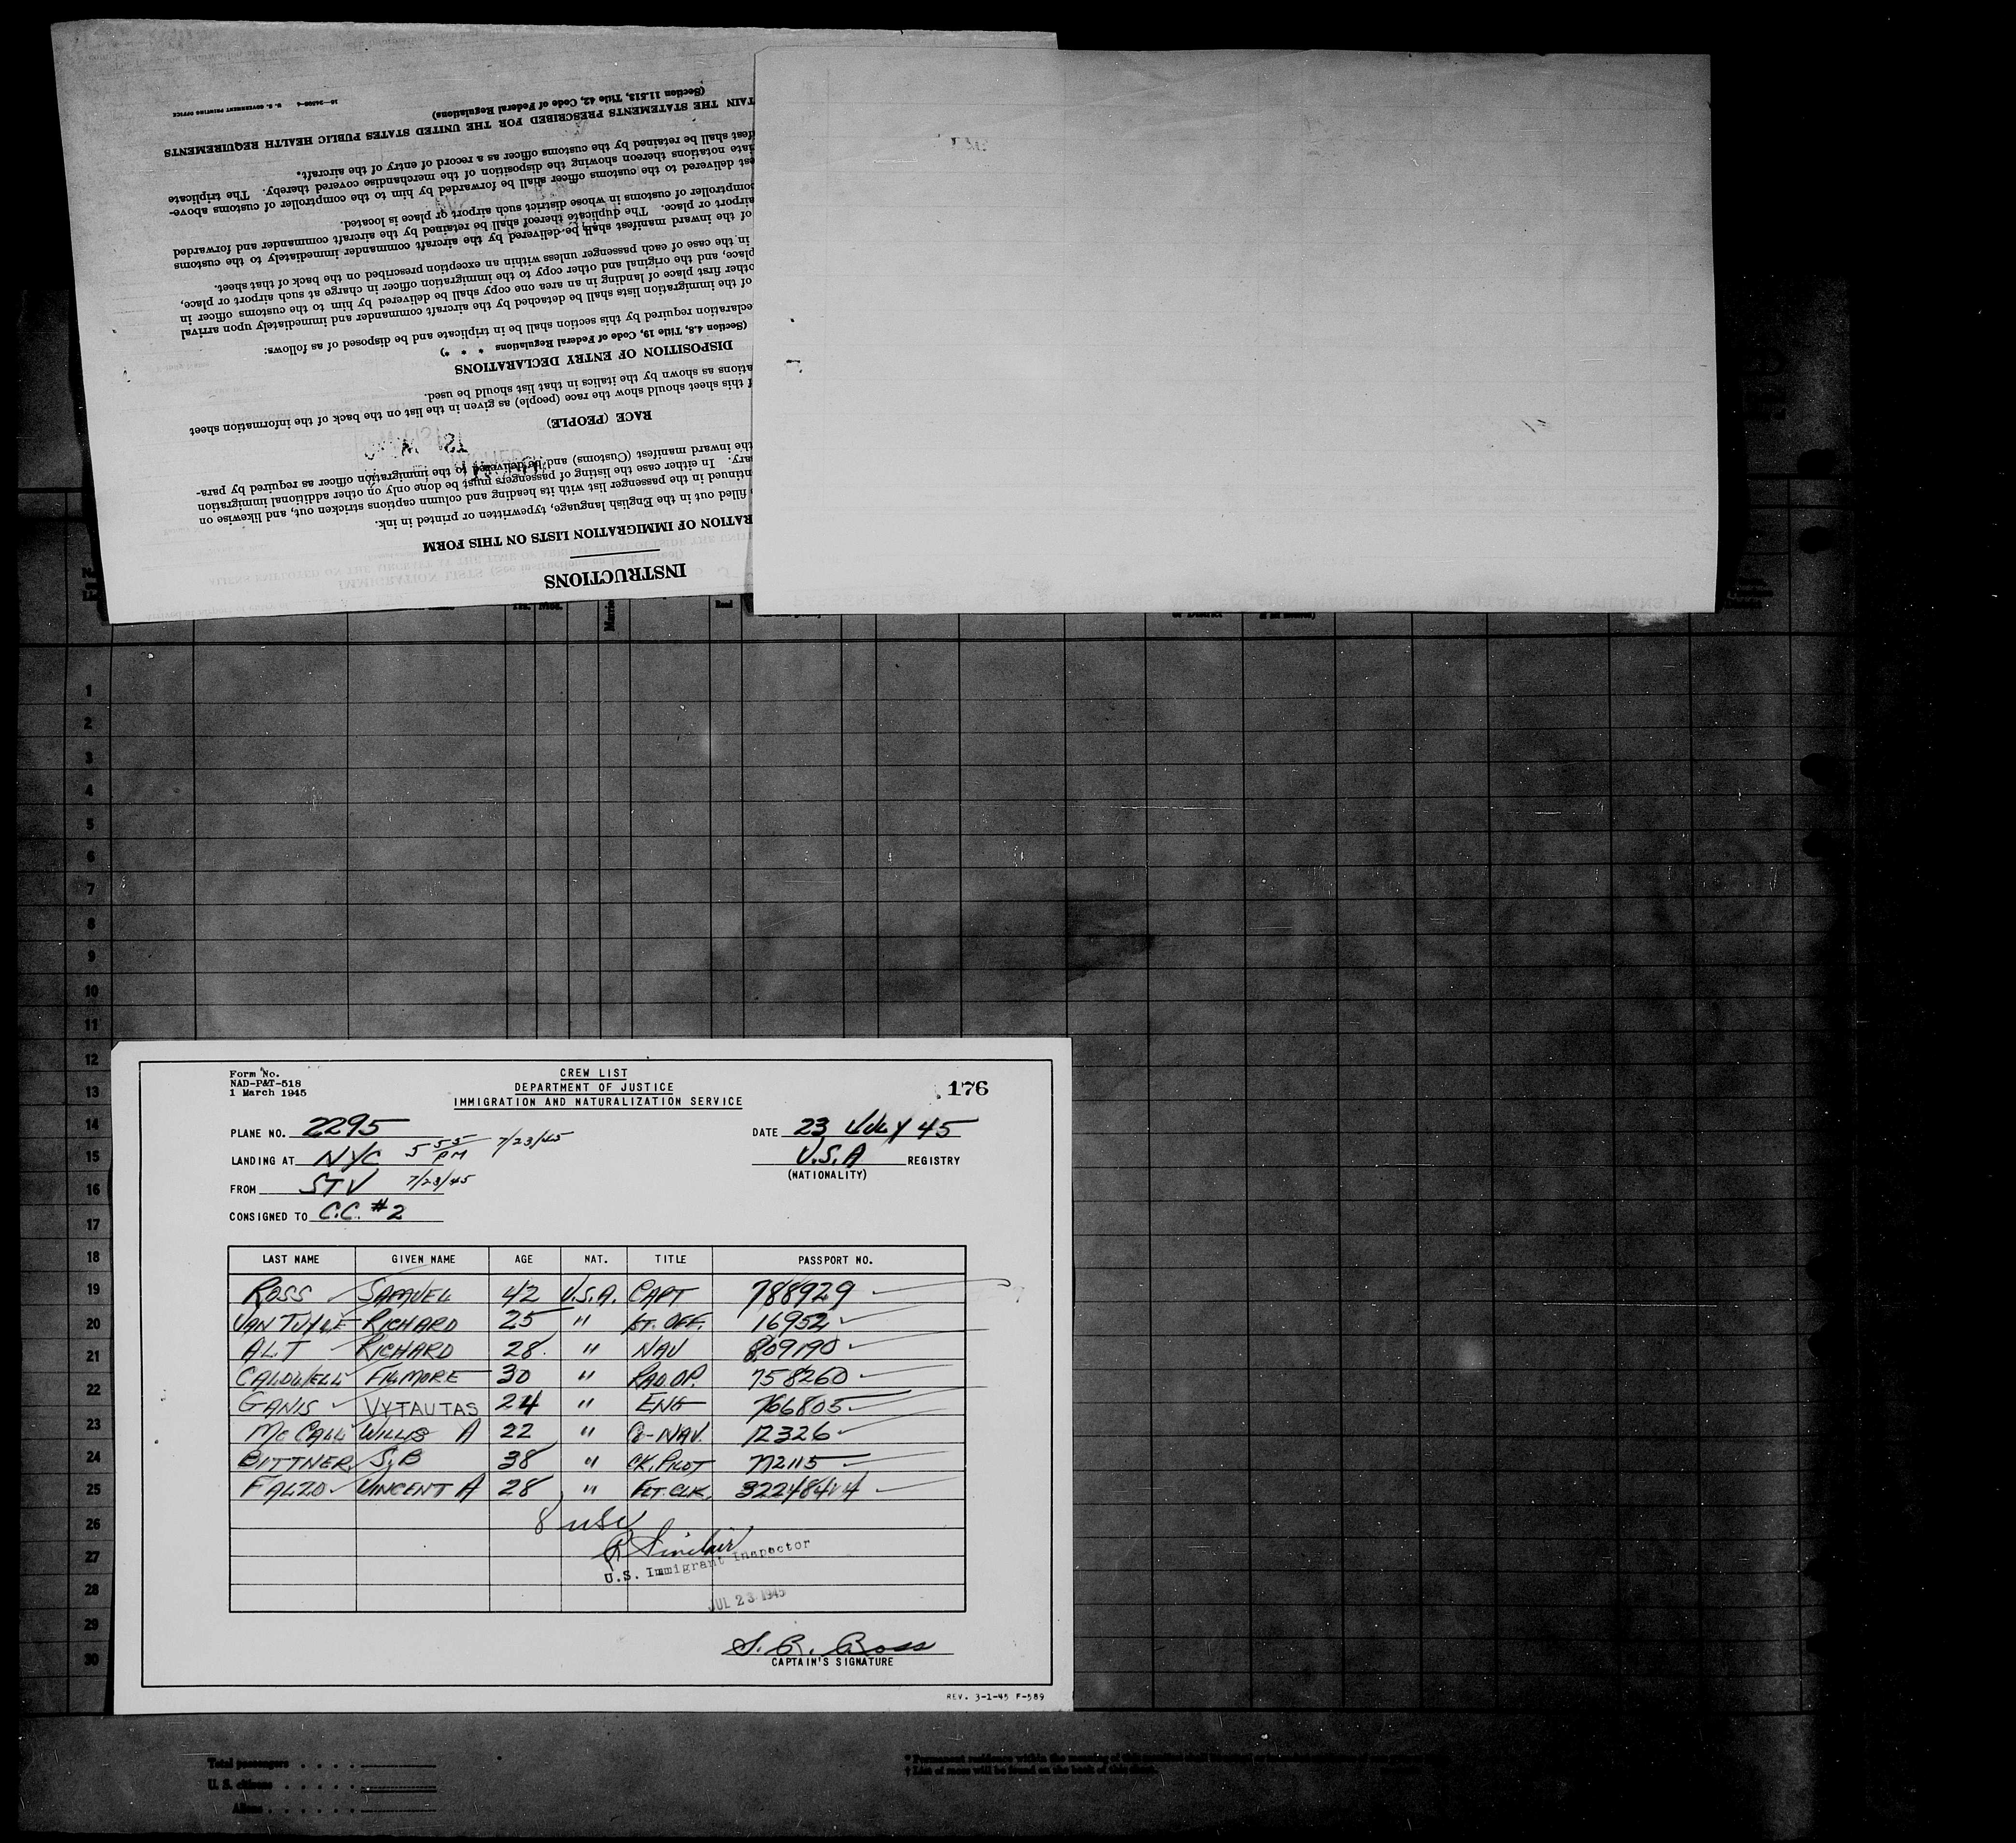 10—34508-4 U. S. GOVERNMENT PRINTING OFFICE
(Section 11.513, Title 42, Code of Federal Regulations)
TAIN THE STATEMENTS PRESCRIBED FOR THE UNITED STATES PUBLIC HEALTH REQUIREMENTS
fest shall be retained by the customs officer as a record of entry of the aircraft.
iate notations thereon showing the disposition of the merchandise covered thereby. The triplicate
est delivered to the customs officer shall be forwarded by him to the comptroller of customs above-
comptroller of customs in whose district such airport or place is located.
airport or place. The duplicate thereof shall be retained by the aircraft commander and forwarded
of the inward manifest shall be delivered by the aircraft commander immediately to the customs
in the case of each passenger unless within an exception prescribed on the back of that sheet.
place, and the original and other copy to the immigration officer in charge at such airport or place,
other first place of landing in an area one copy shall be delivered by him to the customs officer in
of the immigration lists shall be detached by the aircraft commander and immediately upon arrival
eclaration required by this section shall be in triplicate and be disposed of as follows:
(Section 4.8, Title 19, Code of Federal Regulations * * *)
DISPOSITION OF ENTRY DECLARATIONS
ations as shown by the italics in that list should be used.
f this sheet should show the race (people) as given in the list on the back of the information sheet
RACE (PEOPLE)
the inward manifest (Customs) and be delivered to the immigration officer as required by para-
ary. In either case the listing of passengers must be done only on other additional immigration
ntinued in the passenger list with its heading and column captions stricken out, and likewise on
filled out in the English language, typewritten or printed in ink.
RATION OF IMMIGRATION LISTS ON THIS FORM
INSTRUCTIONS
Yrs. Mos.
Read
or District
1
2
3
4
5
6
7
8
9
10
11
12
13
14
15
16
17
18
19
20
21
22
23
24
25
26
27
28
29
30
Form No.
NAD-P&T-518
1 March 1945
CREW LIST
DEPARTMENT OF JUSTICE
IMMIGRATION AND NATURALIZATION SERVICE
176
PLANE NO. 2295
DATE 23 July 45
LANDING AT NYC 5 55 PM 7/23/45
U.S.A REGISTRY
(NATIONALITY)
FROM STV 7/23/45
CONSIGNED TO C.C. #2
LAST NAME GIVEN NAME AGE NAT. TITLE PASSPORT NO.
ROSS SAMUEL 42 U.S.A. CAPT 788929
VAN TUYLE RICHARD 25 " 1ST. OFF. 16952
ALT RICHARD 28 " NAV 809190
CALDWELL FILMORE 30 " RAD OP. 758260
GANIS VYTAUTAS 24 " ENG 766805
McCALL WILLIS A 22 " Co-NAV. 12326
BITTNER S, B 38 " CK. PILOT 772115
FALZO VINCENT A 28 " FLT. CLK. 32248414
8 USC
R Sinclair
U.S. Immigrant Inspector
JUL 23 1945
S. R. Ross
CAPTAIN'S SIGNATURE
REV. 3-1-45 F-589
Total passengers . . . .
U. S. citizens . . . . .
Aliens . . . . . .